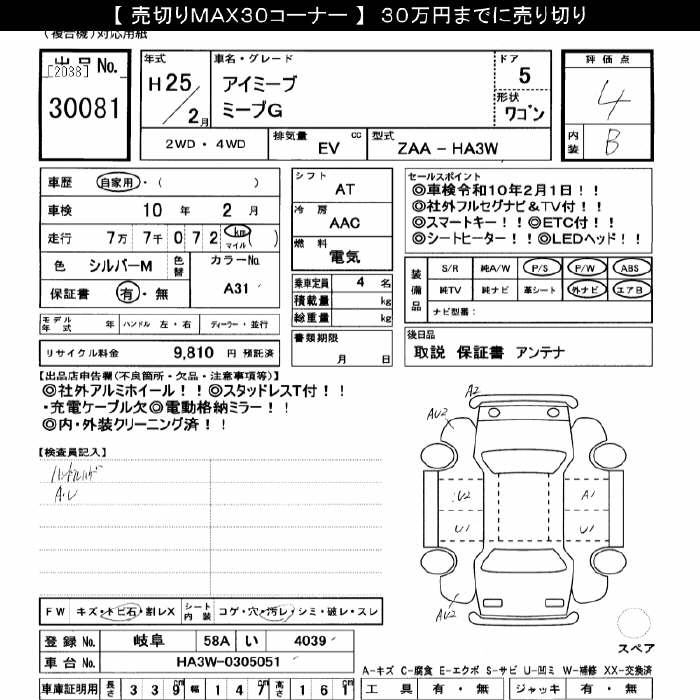 【 売切りMAX30コーナー 】 30万円までに売り切り
(複合機)対応用紙
出品No.
[2038]
30081
年式 H25/2月
車名・グレード
アイミーブ
ミーブG
ドア 5
形状 ワゴン
評価点 4
内装 B
2WD・4WD
排気量 cc EV
型式 ZAA-HA3W
車歴 自家用・( )
車検 10年 2月
走行 7万 7千 0 7 2 km マイル ( )
色 シルバーM 色替
カラーNo. A31
保証書 有・無
シフト AT
冷房 AAC
燃料 電気
乗車定員 4 名
積載量 kg
総重量 kg
セールスポイント
◎車検令和10年2月1日!!
◎社外フルセグナビ&TV付!!
◎スマートキー!!◎ETC付!!
◎シートヒーター!!◎LEDヘッド!!
装備品
S/R 純A/W P/S P/W ABS
純TV 純ナビ 革シート 外ナビ エアB
ナビ型番:
モデル年式 年 ハンドル 左・右 ディーラー・並行
書類期限 月 日
リサイクル料金 9,810 円 預託済
後日品
取説 保証書 アンテナ
【出品店申告欄(不良箇所・欠品・注意事項等)】
◎社外アルミホイール!!◎スタッドレスT付!!
・充電ケーブル欠◎電動格納ミラー!!
◎内・外装クリーニング済!!
【検査員記入】
A・レ
A2
AU2
U2 A1
U1 U1
AU2
スペア
FW キズ・トビ石・割レX
シート内装 コゲ・穴・汚レ・シミ・破レ・スレ
登録No. 岐阜 58A い 4039
車台No. HA3W-0305051
A-キズ C-腐食 E-エクボ S-サビ U-凹ミ W-補修 XX-交換済
車庫証明用 長さ 339cm 幅 147cm 高さ 161cm
工具 有・無 ジャッキ 有・無